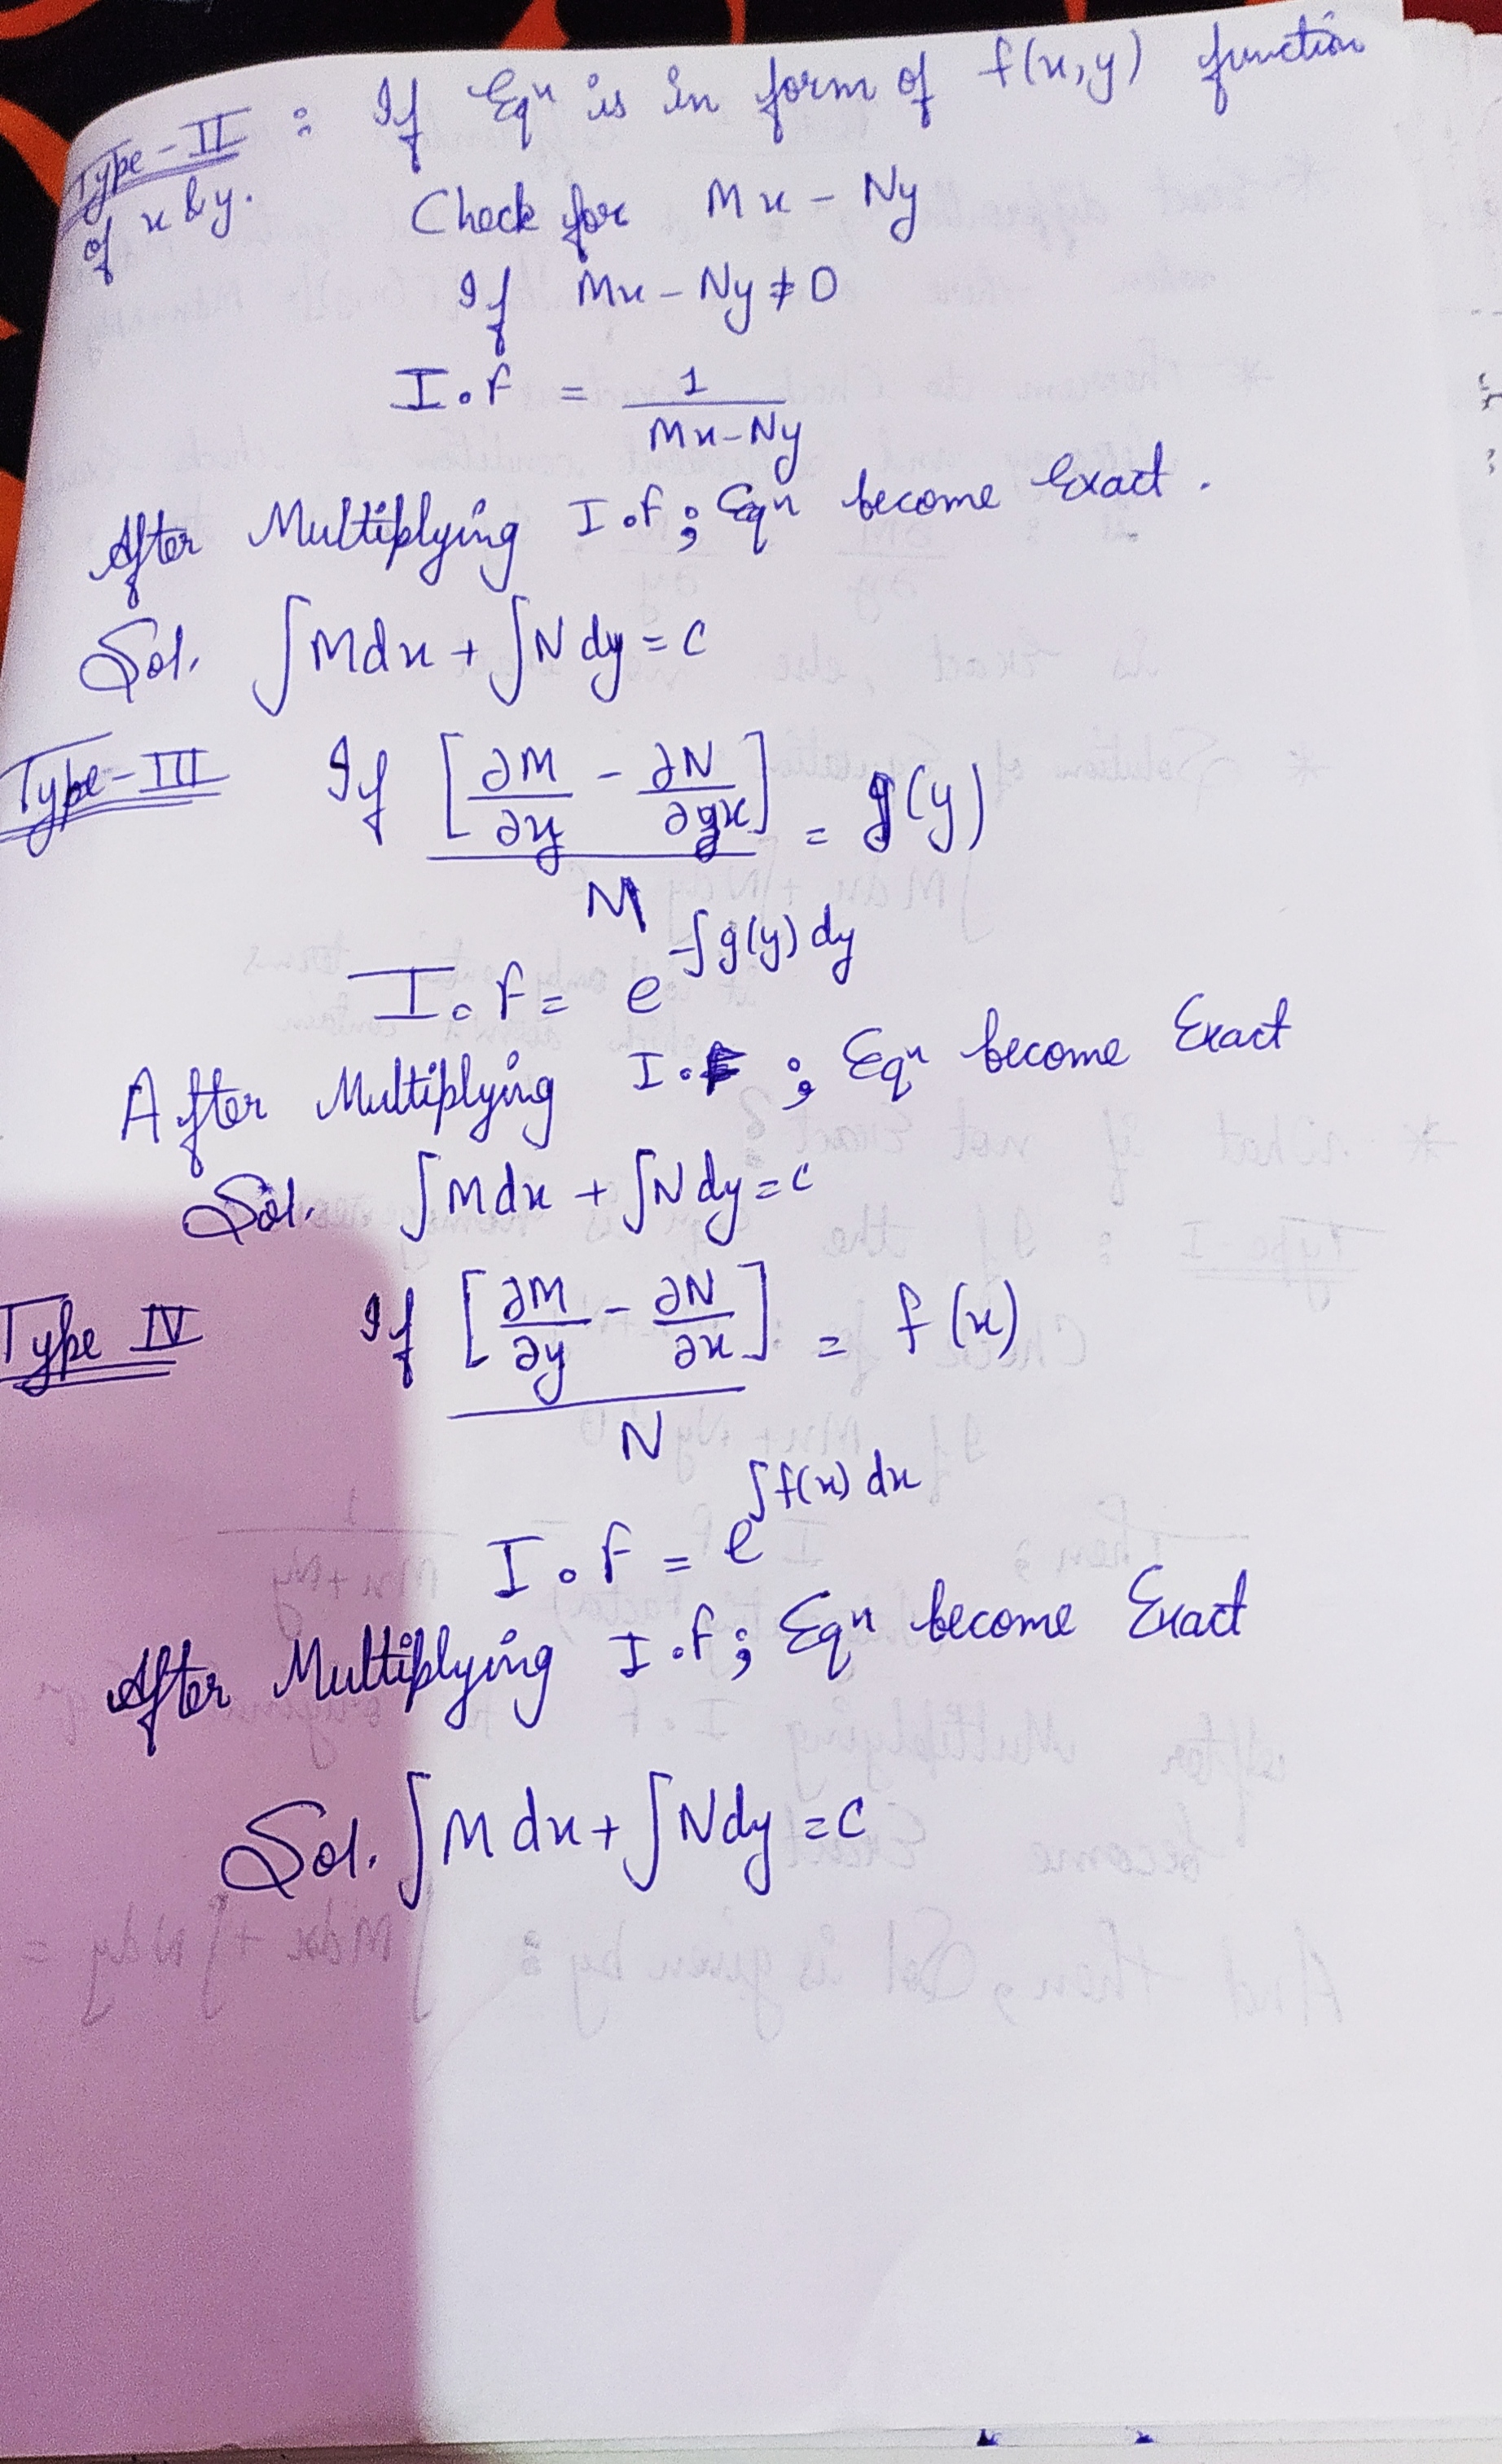 Type-II : If Eqn is in form of f(x,y) function
of x & y. Check for Mx - Ny
If Mx - Ny ≠ 0
I.F = 1/(Mx-Ny)
After Multiplying I.F ; Eqn become Exact.
Sol. ∫Mdx + ∫Ndy = c
Type-III If [∂M/∂y - ∂N/∂x]/M = g(y)
I.F = e^(-∫g(y) dy)
After Multiplying I.F ; Eqn become Exact
Sol. ∫Mdx + ∫Ndy = c
Type IV If [∂M/∂y - ∂N/∂x]/N = f(x)
I.F = e^(∫f(x) dx)
After Multiplying I.F ; Eqn become Exact
Sol. ∫Mdx + ∫Ndy = c